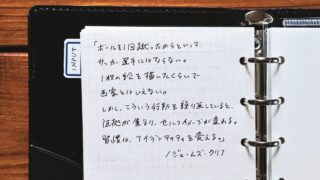 INPUT
「ボールを1回蹴ったからといって
サッカー選手にはならない。
1枚の絵を描いたくらいで
画家とはいえない。
しかし、こういう行動を繰り返していると、
証拠が集まり、セルフイメージが変わる。
習慣は、アイデンティティを変える。」
/ジェームズ・クリア